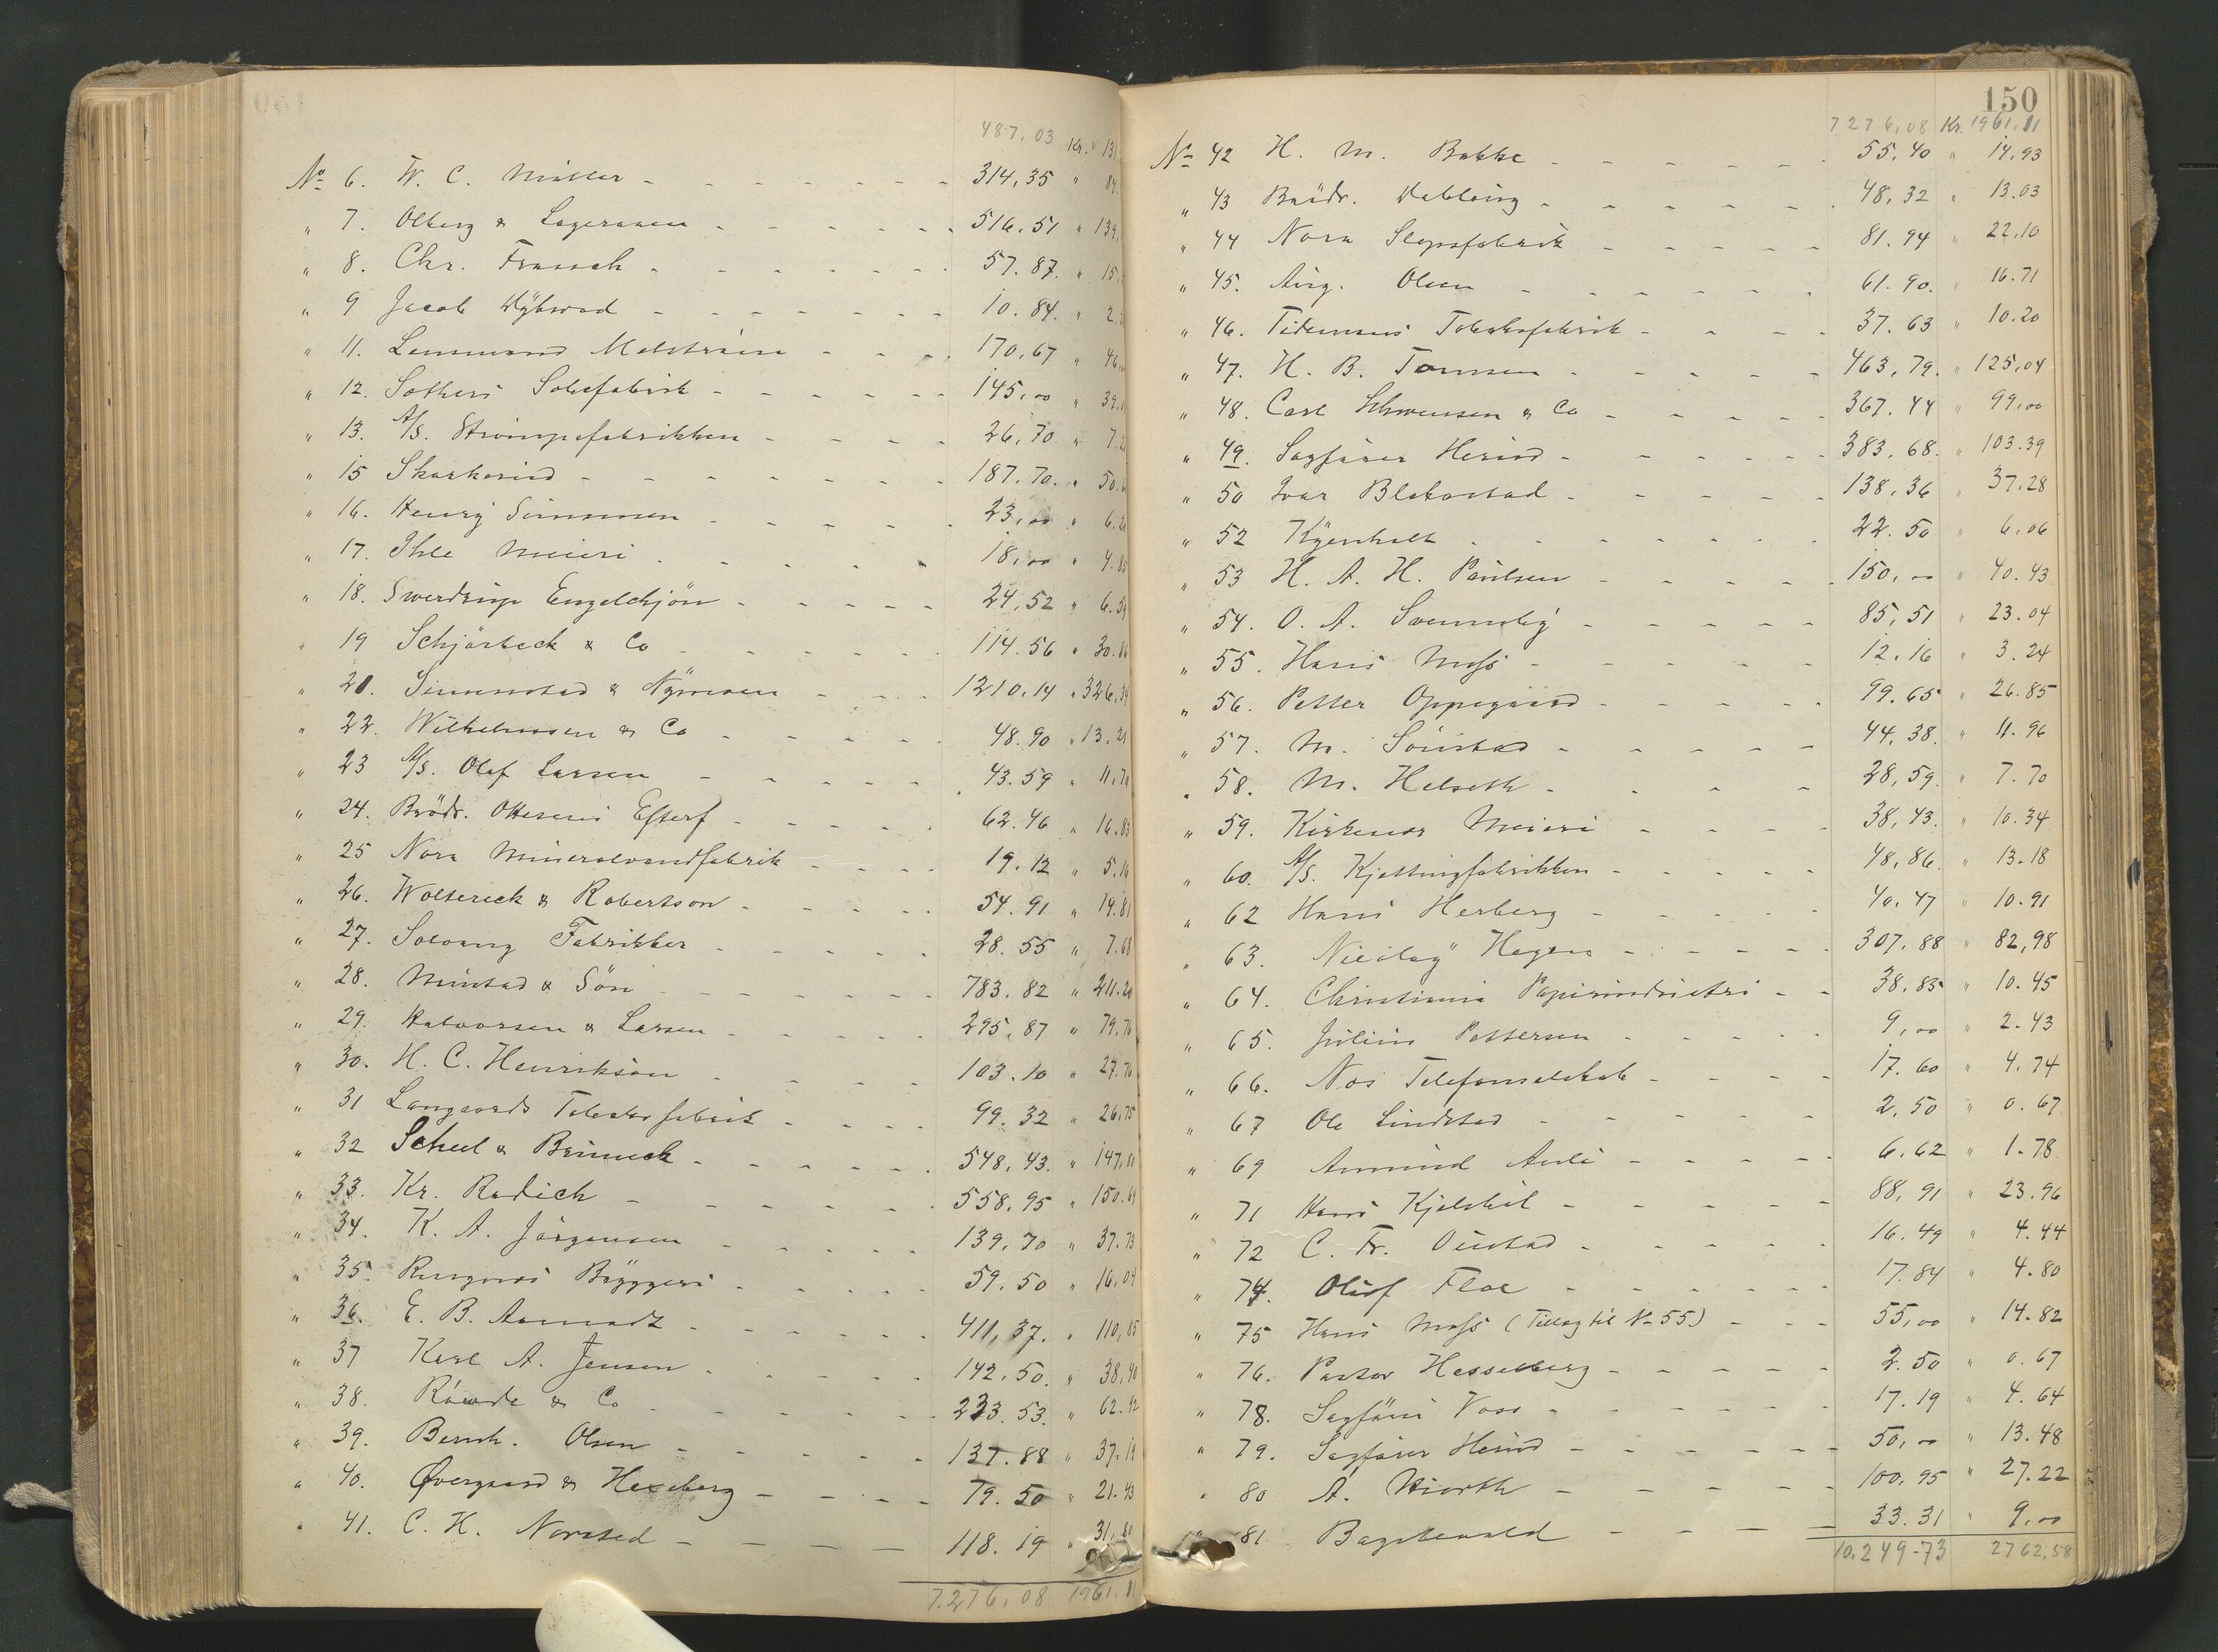 487,03 Kr. 131
No 6. W. C. Müller - 314,35 " 84.
" 7. Olberg & Lageraaen - 516.51 " 139.
" 8. Chr. Fraasch - 57.87. " 15.
" 9 Jacob Dybwad - 10.84. " 2.
" 11. Lensmand Malstrøm - 170,67 " 46.
" 12. Sæthers Sæbefabrik - 145,00 " 39.
" 13. A/S. Strømpefabrikken - 26,70 " 7.2
" 15 Skarkerud - 187.70. " 50.
" 16. Henry Simmonsen - 23,00 " 6.20
" 17. Ihle Meieri - 18,00 " 4.85
" 18. Swerdrup Engelchjøn - 24,52 " 6.59
" 19 Schjørbeck & Co - 114.56 " 30.86
" 21. Simenstad & Nymoen - 1210.14 " 326.34
" 22. Wilhelmsen & Co - 48.90 " 13.21
" 23 A/S. Olaf Larsen - 43.59 " 11.70
" 24. Brödr. Ottesens Efterf - 62.46 " 16.83
" 25 Nora Mineralvandfabrik - 19.12 " 5.16
" 26. Woltereck & Robertson - 54.91 " 14.81
" 27. Solvang Fabrikker - 28.55 " 7.68
" 28. Mustad & Sön - 783.82 " 211.20
" 29. Halvorsen & Larsen - 295,87 " 79.76
" 30. H. C. Henriksen - 103.10 " 27.76
" 31 Langaards Tobaksfabrik - 99.32 " 26.75
" 32 Scheel & Brinnech - 548,43. " 147,81
" 33. Kr. Radich - 558,95 " 150.69
" 34. K. A. Jörgensen - 139,70 " 37.73
" 35. Ringnes Bryggeri - 59.50 " 16.04
" 36. E. B. Aamodt - 411,37. " 110,85
" 37 Karl A. Jensen - 142,50. " 38,40
" 38. Rawde & Co - 233.53. " 62.92
" 39. Bernh. Olsen - 137.88 " 37,19
" 40. Øvergaard & Hexeberg - 79.50 " 21.43
" 41. C. H. Norsted - 118.19 " 31,
7.276,08 1961.11
150
7276,08 Kr. 1961,11
No 42 H. M. Bakke - 55,40 " 14,93
" 43 Brödr. Dæhling - 48,32 " 13.03
" 44 Nora Slipsfabrik - 81.94 " 22.10
" 45. Aug. Olsen - 61.90. " 16.71
" 46. Tidemans Tobaksfabrik - 37.63 " 10.20
" 47. H. B. Tannum - 463,79. " 125,04
" 48. Carl Schwensen & Co - 367.44 " 99,00
" 49. Sagfører Herud - 383,68. " 103.39
" 50 Ivar Blekastad - 138,36 " 37,28
" 52 Kyenholt - 22.50 " 6,06
" 53 H. A. H. Paulsen - 150,00 " 40.43
" 54. O. A. Svenneby - 85,51 " 23.04
" 55. Hans Moss - 12.16 " 3.24
" 56. Petter Oppegaard - 99.65 " 26.85
" 57. M. Sönsteb - 44,38. " 11.96
" 58. M. Helseth - 28,59. " 7.70
" 59. Kirkenær Meieri - 38,43. " 10.34
" 60. A/S. Kjettingfabrikken - 48,86. " 13.18
" 62 Hans Herberg - 40.47 " 10.91
" 63. Nicolay Hagen - 307,88 " 82,98
" 64. Christiania Papirindustri - 38,83 " 10.45
" 65. Julius Pettersen - 9,00 " 2.43
" 66. Nos Telefonselskab - 17.60 " 4,74
" 67 Ole Lindstad - 2,50 " 0.67
" 69 Amund Auli - 6,62 " 1.78
" 71 Hans Kjelshol - 88,91 " 23.96
" 72 C. Fr. Oustad - 16.49 " 4.44
" 74. Oluf Floe - 17.84 " 4.80
" 75 Hans Moss (Tillæg til No 55) - 55,00 " 14.82
" 76. Pastor Hesselberg - 2.50 " 0.67
" 78. Sagfører Voss - 17.19 " 4.64
" 79. Sagfører Herud - 50,00 " 13.48
" 80 A. Hiorth - 100.95 " 27.22
" 81 Bagstevold - 33.31 " 9,00
10.249-73 2762,58